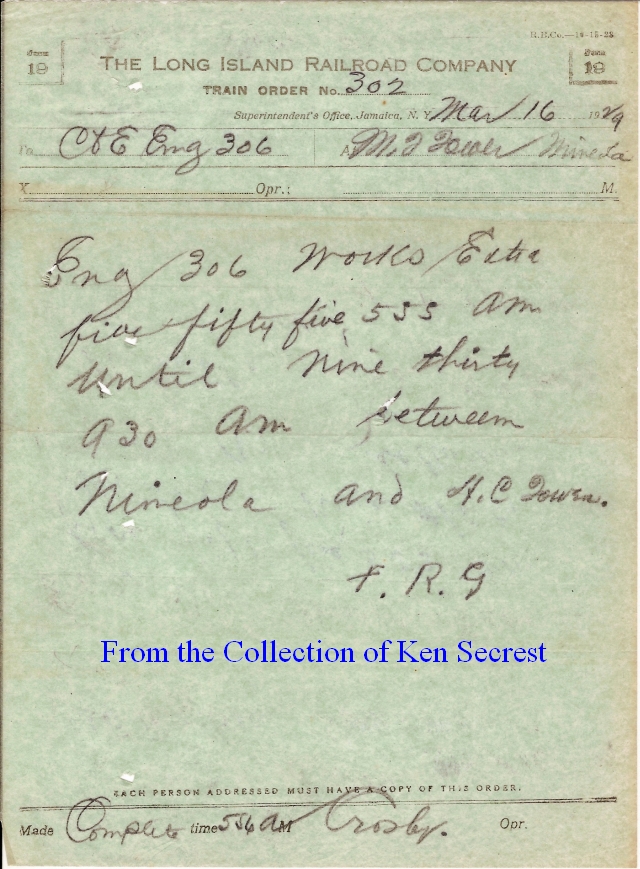 R.E.Co.—
Form
19
Form
19
THE LONG ISLAND RAILROAD COMPANY
TRAIN ORDER No. 302
Superintendent's Office, Jamaica, N. Y. Mar 16 1929
To C&E Eng 306 At M.T Tower Mineola
X Opr.; M.
Eng 306 Works Extra
five fifty five 555 am
until nine thirty
930 Am between
Mineola and H.C Tower.
F. R. G
From the Collection of Ken Secrest
EACH PERSON ADDRESSED MUST HAVE A COPY OF THIS ORDER.
Made Complete time 556 AM Crosby. Opr.